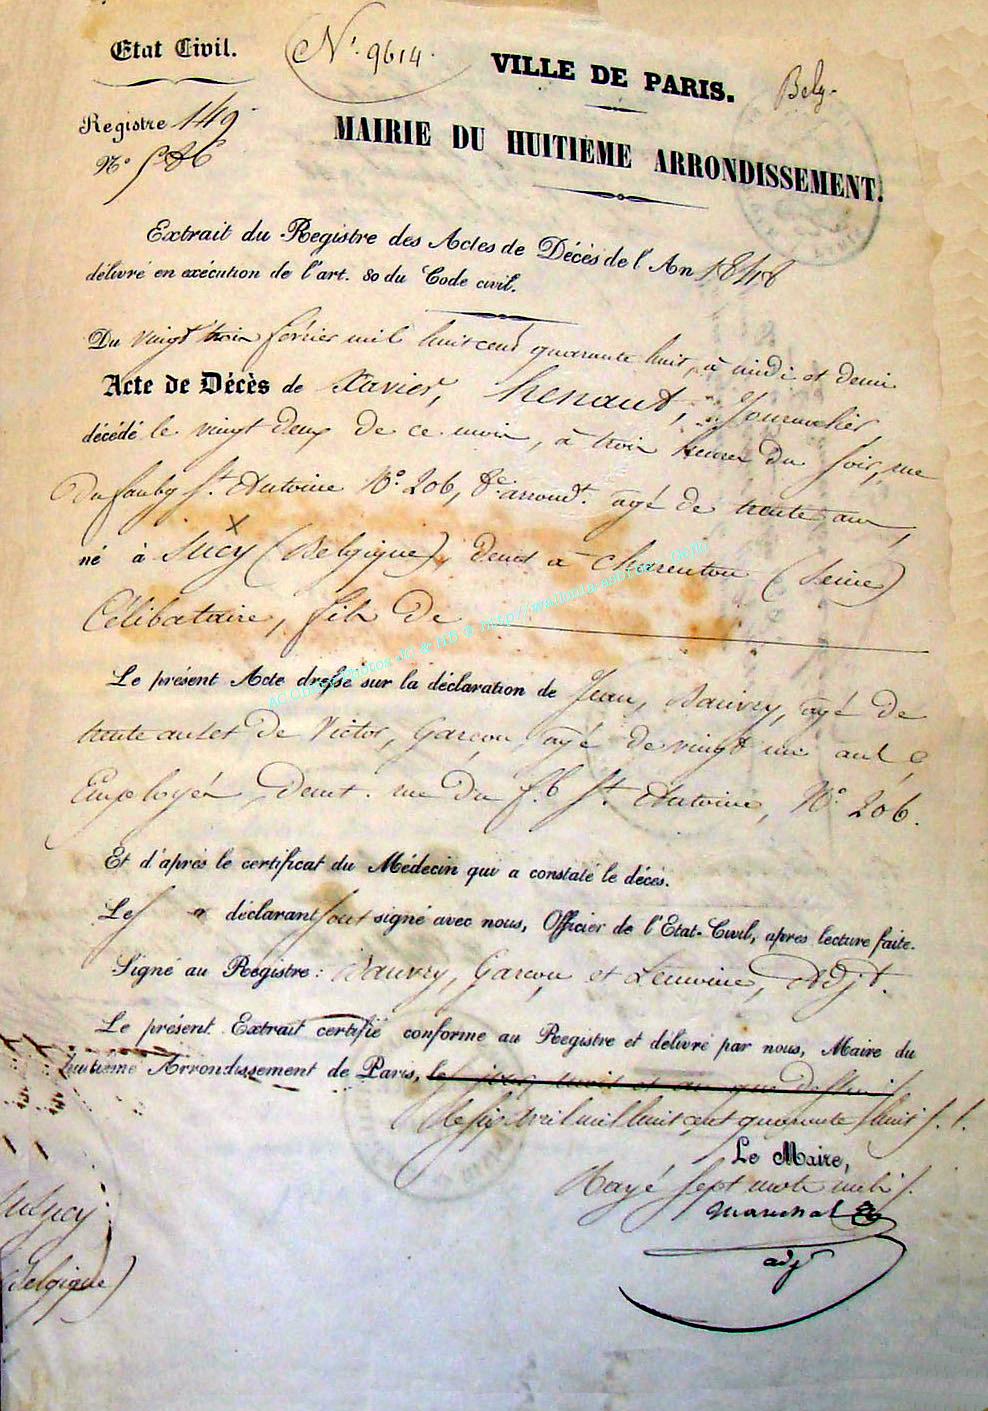 Etat Civil.
N° 9614.
VILLE DE PARIS.
Belg.
Registre 149
N° 586
MAIRIE DU HUITIÈME ARRONDISSEMENT.
Extrait du Registre des Actes de Décès de l'An 1848
délivré en exécution de l'art. 80 du Code civil.
Du vingt trois février mil huit cent quarante huit, à midi et demi
Acte de Décès de Xavier, henaut, Journalier,
décédé le vingt deux de ce mois, à trois heures du soir, rue
du faubg St. Antoine N° 206, 8e arrondt. agé de trente ans,
né à Sucy (Belgique), demt à Charenton (Seine)
Célibataire, fils de
Le présent Acte dressé sur la déclaration de Jean, Vauvry, agé de
trente ans et de Victor, Garçon, agé de vingt un ans
Employés, demt. rue du f.b St. Antoine, N° 206.
Et d'après le certificat du Médecin qui a constaté le décès.
Les déclarant sont signé avec nous, Officier de l'Etat-Civil, après lecture faite.
Signé au Registre: Vauvry, Garçon et Lemoine, Adjt.
Le présent Extrait certifié conforme au Registre et délivré par nous, Maire du
huitième Arrondissement de Paris,
le six avril mil huit cent quarante huit
Le Maire,
Rayé sept mots nuls
Marechal
adjt
(Belgique)